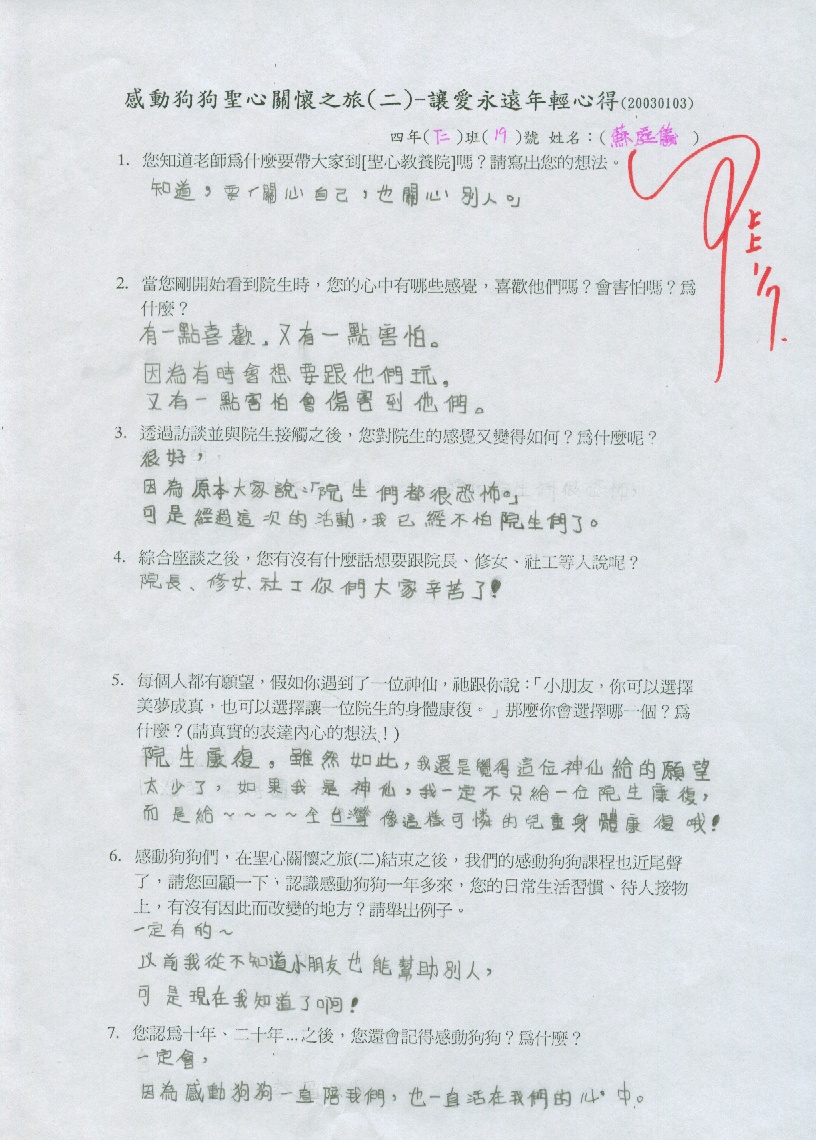 感動狗狗聖心關懷之旅(二)-讓愛永遠年輕心得(20030103)
四年(仁)班(19)號 姓名：(蘇庭儀)
1. 您知道老師爲什麼要帶大家到[聖心教養院]嗎？請寫出您的想法。
知道，要「關心自己，也關心別人。」
上上
1/7.
2. 當您剛開始看到院生時，您的心中有哪些感覺，喜歡他們嗎？會害怕嗎？爲
什麼？
有一點喜歡。又有一點害怕。
因為有時會想要跟他們玩。
又有一點害怕會傷害到他們。
3. 透過訪談並與院生接觸之後，您對院生的感覺又變得如何？爲什麼呢？
很好，
因為原本大家說：「院生們都很恐怖。」
可是經過這次的活動，我已經不怕院生們了。
4. 綜合座談之後，您有沒有什麼話想要跟院長、修女、社工等人說呢？
院長、修女、社工你們大家辛苦了！
5. 每個人都有願望，假如你遇到了一位神仙，祂跟你說：「小朋友，你可以選擇
美夢成真，也可以選擇讓一位院生的身體康復。」那麼你會選擇哪一個？爲
什麼？(請真實的表達內心的想法！)
院生康復，雖然如此，我還是覺得這位神仙給的願望
太少了，如果我是神仙，我一定不只給一位院生康復，
而是給～～～～全台灣像這樣可憐的兒童身體康復哦！
6. 感動狗狗們，在聖心關懷之旅(二)結束之後，我們的感動狗狗課程也近尾聲
了，請您回顧一下，認識感動狗狗一年多來，您的日常生活習慣、待人接物
上，有沒有因此而改變的地方？請舉出例子。
一定有的～
以前我從不知道小朋友也能幫助別人，
可是現在我知道了啊！
7. 您認爲十年、二十年...之後，您還會記得感動狗狗？爲什麼？
一定會，
因為感動狗狗一直陪我們，也一直活在我們的心中。